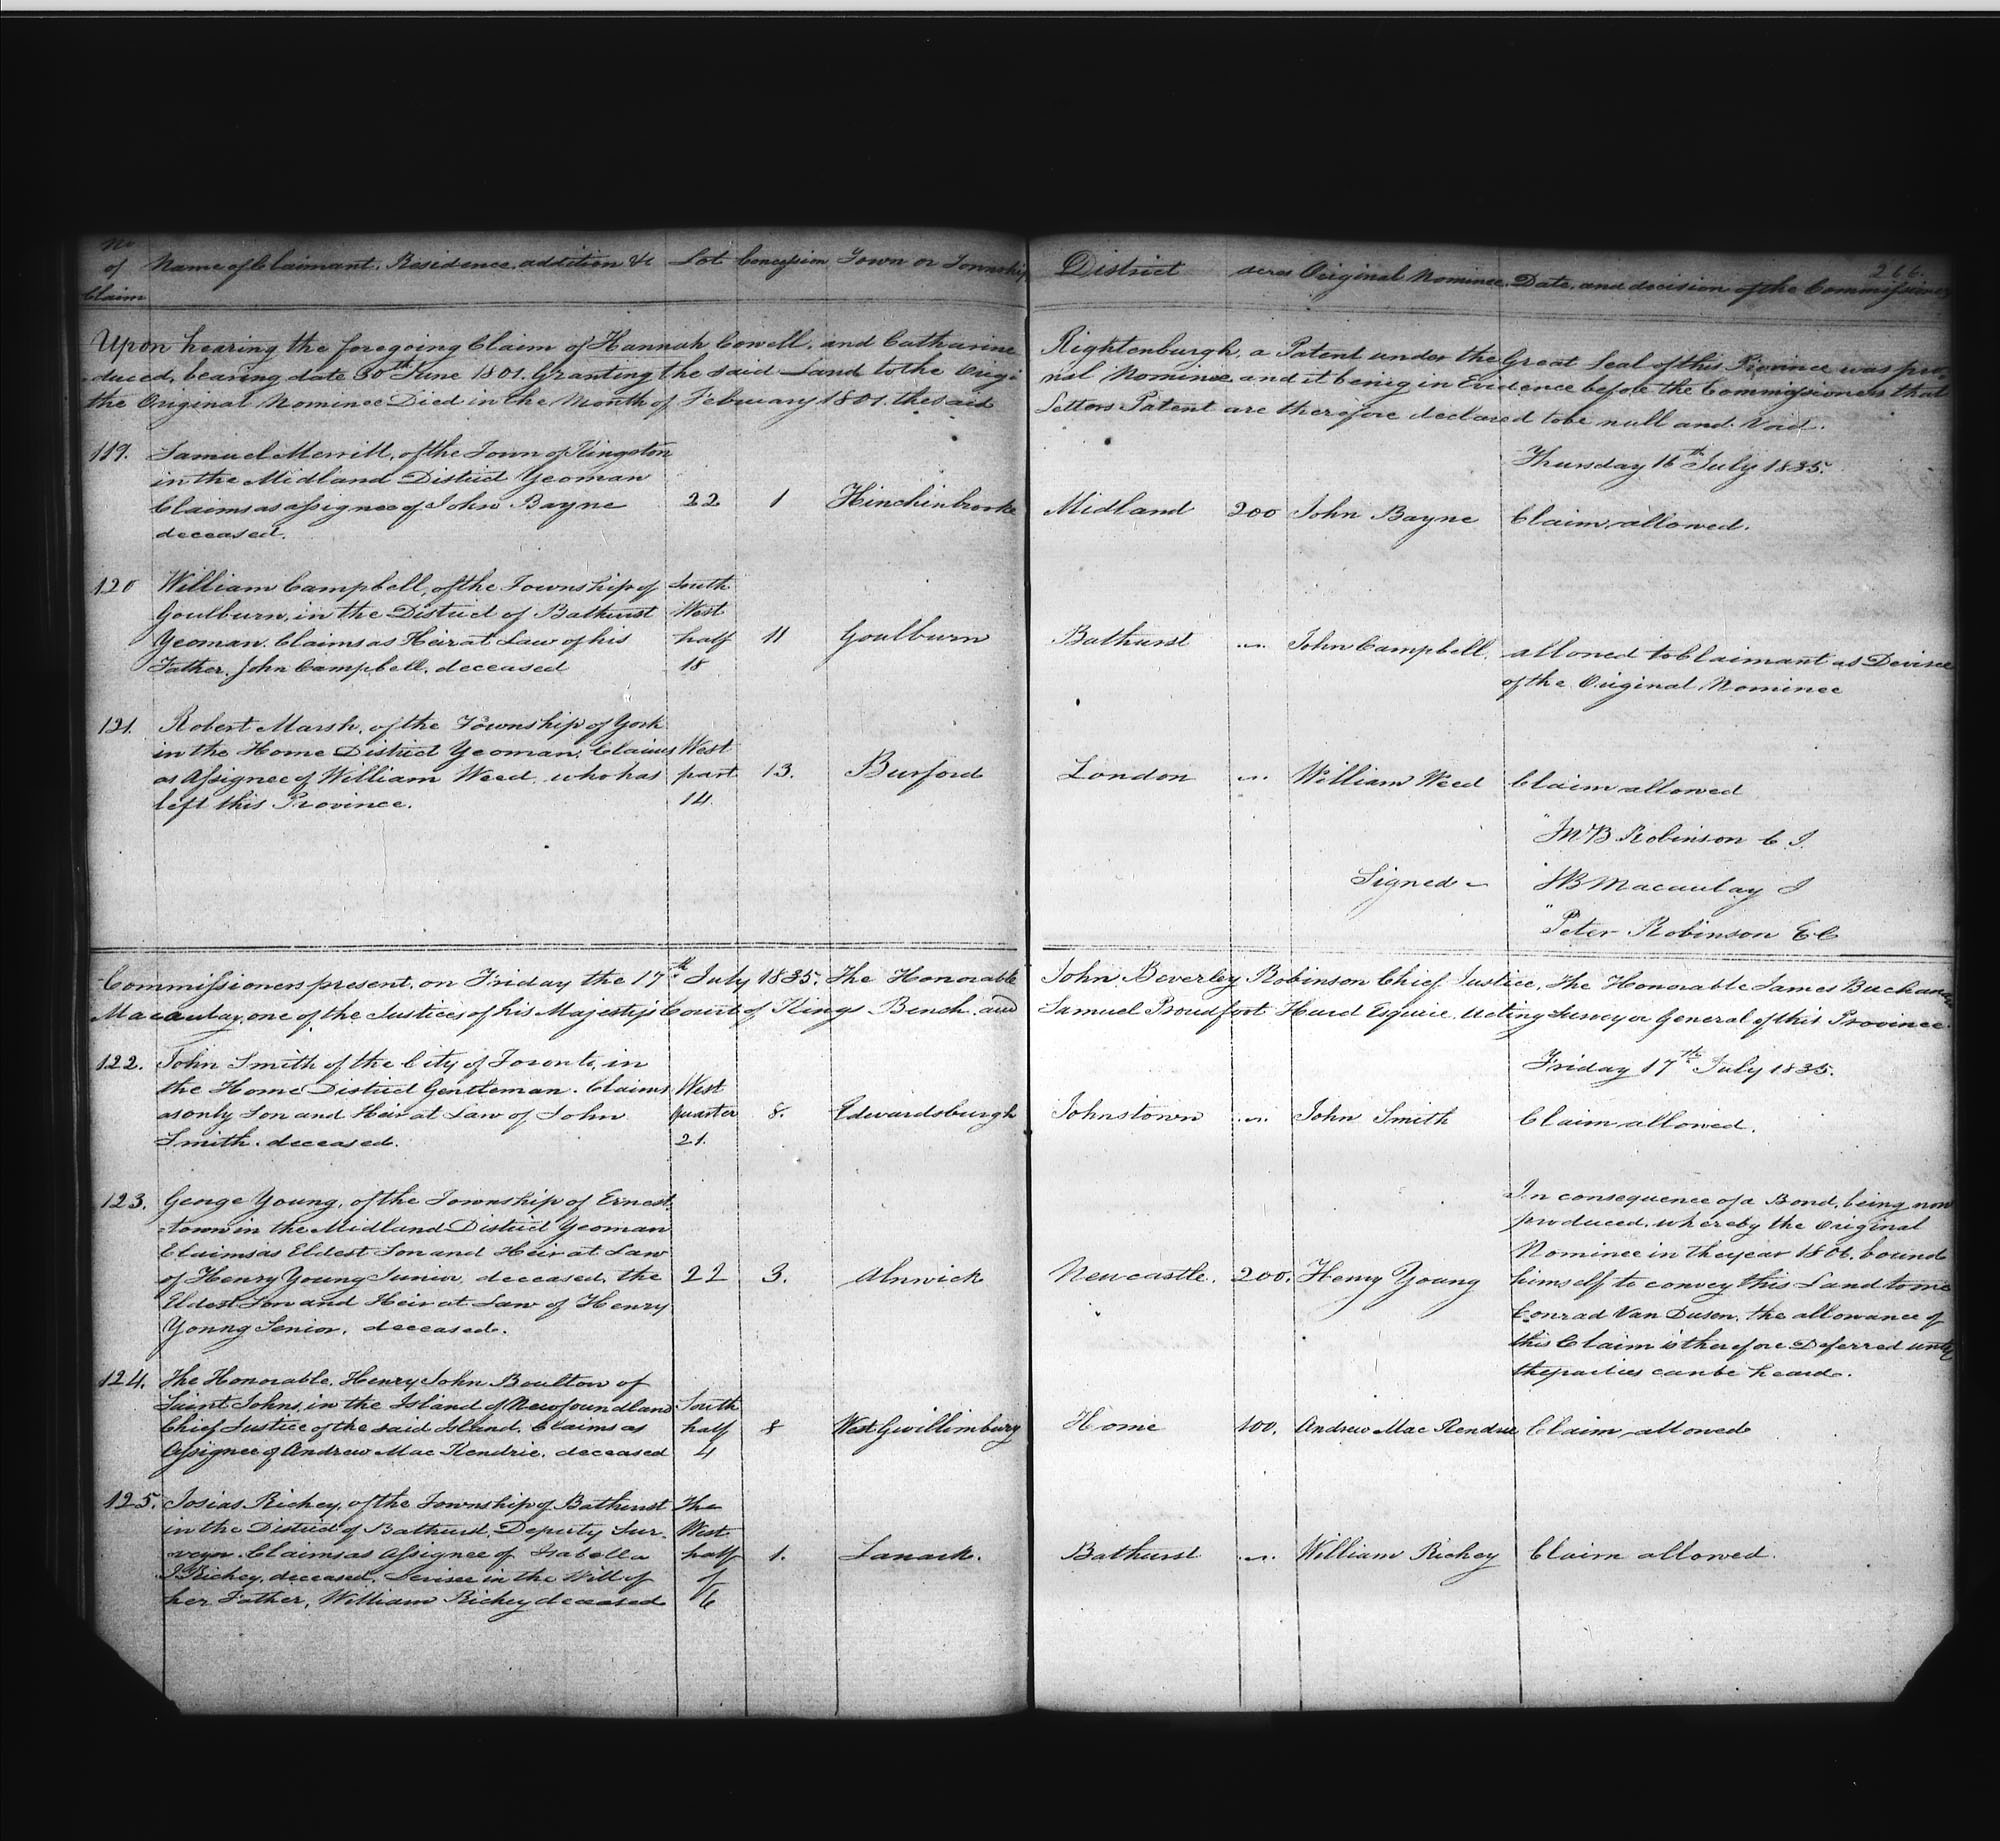 266.
No of Claim Name of Claimant, Residence, addition &c Lot Concession Town or Township District acres Original Nominee Date, and decision of the Commissioners
Upon hearing the foregoing Claim of Hannah Cowell, and Catharine Rightenburgh, a Patent under the Great Seal of this Province was pro-
duced, bearing date 30th June 1801. Granting the said Land to the Origi-
nal Nominee, and it being in Evidence before the Commissioners that
the Original Nominee Died in the Month of February 1801. the said
Letters Patent are therefore declared to be null and Void.
Thursday 16th July 1835.
119. Samuel Merrill, of the Town of Kingston
in the Midland District Yeoman
Claims as assignee of John Bayne 22 1 Hinchinbrooke Midland 200 John Bayne Claim, allowed.
deceased.
120 William Campbell, of the Township of South
Goulburn, in the District of Bathurst West
Yeoman. Claims as Heir at Law of his half 11 Goulburn Bathurst " John Campbell. allowed to Claimant as Devisee
Father, John Campbell, deceased 18 of the Original Nominee
121. Robert Marsh, of the Township of York
in the Home District Yeoman, Claims West
as Assignee of William Weed, who has part 13. Burford London " William Weed Claim allowed
left this Province. 14.
" Jno B Robinson C J.
Signed - " J B Macaulay J
" Peter Robinson E C
Commissioners present, on Friday the 17th July 1835. The Honorable John Beverley Robinson Chief Justice, The Honorable James Buchanan
Macaulay, one of the Justices of his Majestys Court of Kings Bench, and Samuel Proudfoot Hurd Esquire Acting Surveyor General of this Province.
Friday 17th July 1835.
122. John Smith of the City of Toronto, in
the Home District Gentleman. Claims West
as only Son and Heir at Law of John quarter 8. Edwardsburgh Johnstown " John Smith Claim allowed.
Smith. deceased. 21.
123. George Young, of the Township of Ernest
town in the Midland District Yeoman
Claims as Eldest Son and Heir at Law
of Henry Young Junior, deceased, the 22 3. Alnwick Newcastle. 200. Henry Young
Eldest Son and Heir at Law of Henry
Young Senior, deceased.
In consequence of a Bond, being now
produced, whereby the Original
Nominee in the year 1806. bound
himself to convey this Land to one
Conrad Van Dusen, the allowance of
this Claim is therefore Deferred until
the parties can be heard.
124. The Honorable Henry John Boulton of
Saint Johns, in the Island of Newfoundland South
Chief Justice of the said Island. Claims as half 8 West Gwillimbury Home 100. Andrew Mac Kendrie Claim, allowed
Assignee of Andrew Mac Kendrie, deceased 4
125. Josias Richey, of the Township of Bathurst The
in the District of Bathurst, Deputy Sur- West
veyor. Claims as Assignee of Isabella half 1. Lanark. Bathurst " William Richey Claim allowed.
J Richey, deceased, Devisee in the Will of of
her Father, William Richey deceased 6